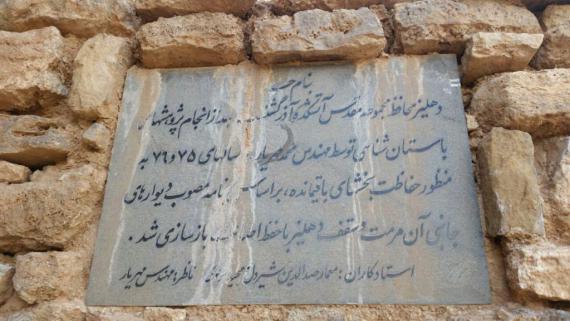 بنام حق
دهلیز محافظ مجموعه مقدس آتشکده آذرگشنسب بعد از انجام پژوهشهای
باستان شناسی توسط مهندس مهریار سالهای ۷۵ و ۷۶ به
منظور حفاظت بخشهای باقیمانده، براساس برنامه مصوب دیوارهای
جانبی آن مرمت و سقف دهلیز با حفظ بازسازی شد.
استادکاران: معمار صدالدین شیردل ناظر: مهندس مهریار